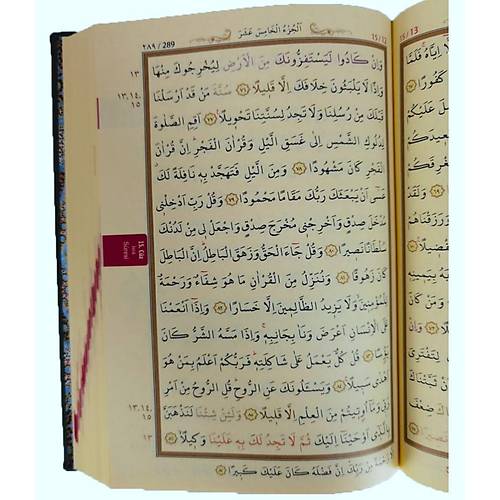 اَلْجُزْءُ الْخَامِسُ عَشَرَ
٢٨٩ / 289
15 / 12
15 / 13
وَاِنْ كَادُوا لَيَسْتَفِزُّونَكَ مِنَ الْاَرْضِ لِيُخْرِجُوكَ مِنْهَا
وَاِذًا لَا يَلْبَثُونَ خِلَافَكَ اِلَّا قَلٖيلًا ﴿٧٦﴾ سُنَّةَ مَنْ قَدْ اَرْسَلْنَا
قَبْلَكَ مِنْ رُسُلِنَا وَلَا تَجِدُ لِسُنَّتِنَا تَحْوٖيلًا ﴿٧٧﴾ اَقِمِ الصَّلٰوةَ
لِدُلُوكِ الشَّمْسِ اِلٰى غَسَقِ الَّيْلِ وَقُرْاٰنَ الْفَجْرِ اِنَّ قُرْاٰنَ
الْفَجْرِ كَانَ مَشْهُودًا ﴿٧٨﴾ وَمِنَ الَّيْلِ فَتَهَجَّدْ بِهٖ نَافِلَةً لَكَ
عَسٰٓى اَنْ يَبْعَثَكَ رَبُّكَ مَقَامًا مَحْمُودًا ﴿٧٩﴾ وَقُلْ رَبِّ اَدْخِلْنٖى
مُدْخَلَ صِدْقٍ وَاَخْرِجْنٖى مُخْرَجَ صِدْقٍ وَاجْعَلْ لٖى مِنْ لَدُنْكَ
سُلْطَانًا نَصٖيرًا ﴿٨٠﴾ وَقُلْ جَٓاءَ الْحَقُّ وَزَهَقَ الْبَاطِلُ اِنَّ الْبَاطِلَ
كَانَ زَهُوقًا ﴿٨١﴾ وَنُنَزِّلُ مِنَ الْقُرْاٰنِ مَا هُوَ شِفَٓاءٌ وَرَحْمَةٌ
لِلْمُؤْمِنٖينَ وَلَا يَزٖيدُ الظَّالِمٖينَ اِلَّا خَسَارًا ﴿٨٢﴾ وَاِذَٓا اَنْعَمْنَا
عَلَى الْاِنْسَانِ اَعْرَضَ وَنَاٰ بِجَانِبِهٖ وَاِذَا مَسَّهُ الشَّرُّ كَانَ
يَؤُسًا ﴿٨٣﴾ قُلْ كُلٌّ يَعْمَلُ عَلٰى شَاكِلَتِهٖ فَرَبُّكُمْ اَعْلَمُ بِمَنْ هُوَ
اَهْدٰى سَبٖيلًا ﴿٨٤﴾ وَيَسْـَٔلُونَكَ عَنِ الرُّوحِ قُلِ الرُّوحُ مِنْ اَمْرِ
رَبّٖى وَمَٓا اُوتٖيتُمْ مِنَ الْعِلْمِ اِلَّا قَلٖيلًا ﴿٨٥﴾ وَلَئِنْ شِئْنَا لَنَذْهَبَنَّ
بِالَّذٖٓى اَوْحَيْنَٓا اِلَيْكَ ثُمَّ لَا تَجِدُ لَكَ بِهٖ عَلَيْنَا وَكٖيلًا ﴿٨٦﴾
رَحْمَةً مِنْ رَبِّكَ اِنَّ فَضْلَهُ كَانَ عَلَيْكَ كَبٖيرًا ﴿٨٧﴾
١٣
١٣،١٤،
١٥
15. Cüz
İsrâ
Sûresi
١٣،١٤،
١٥
١٣